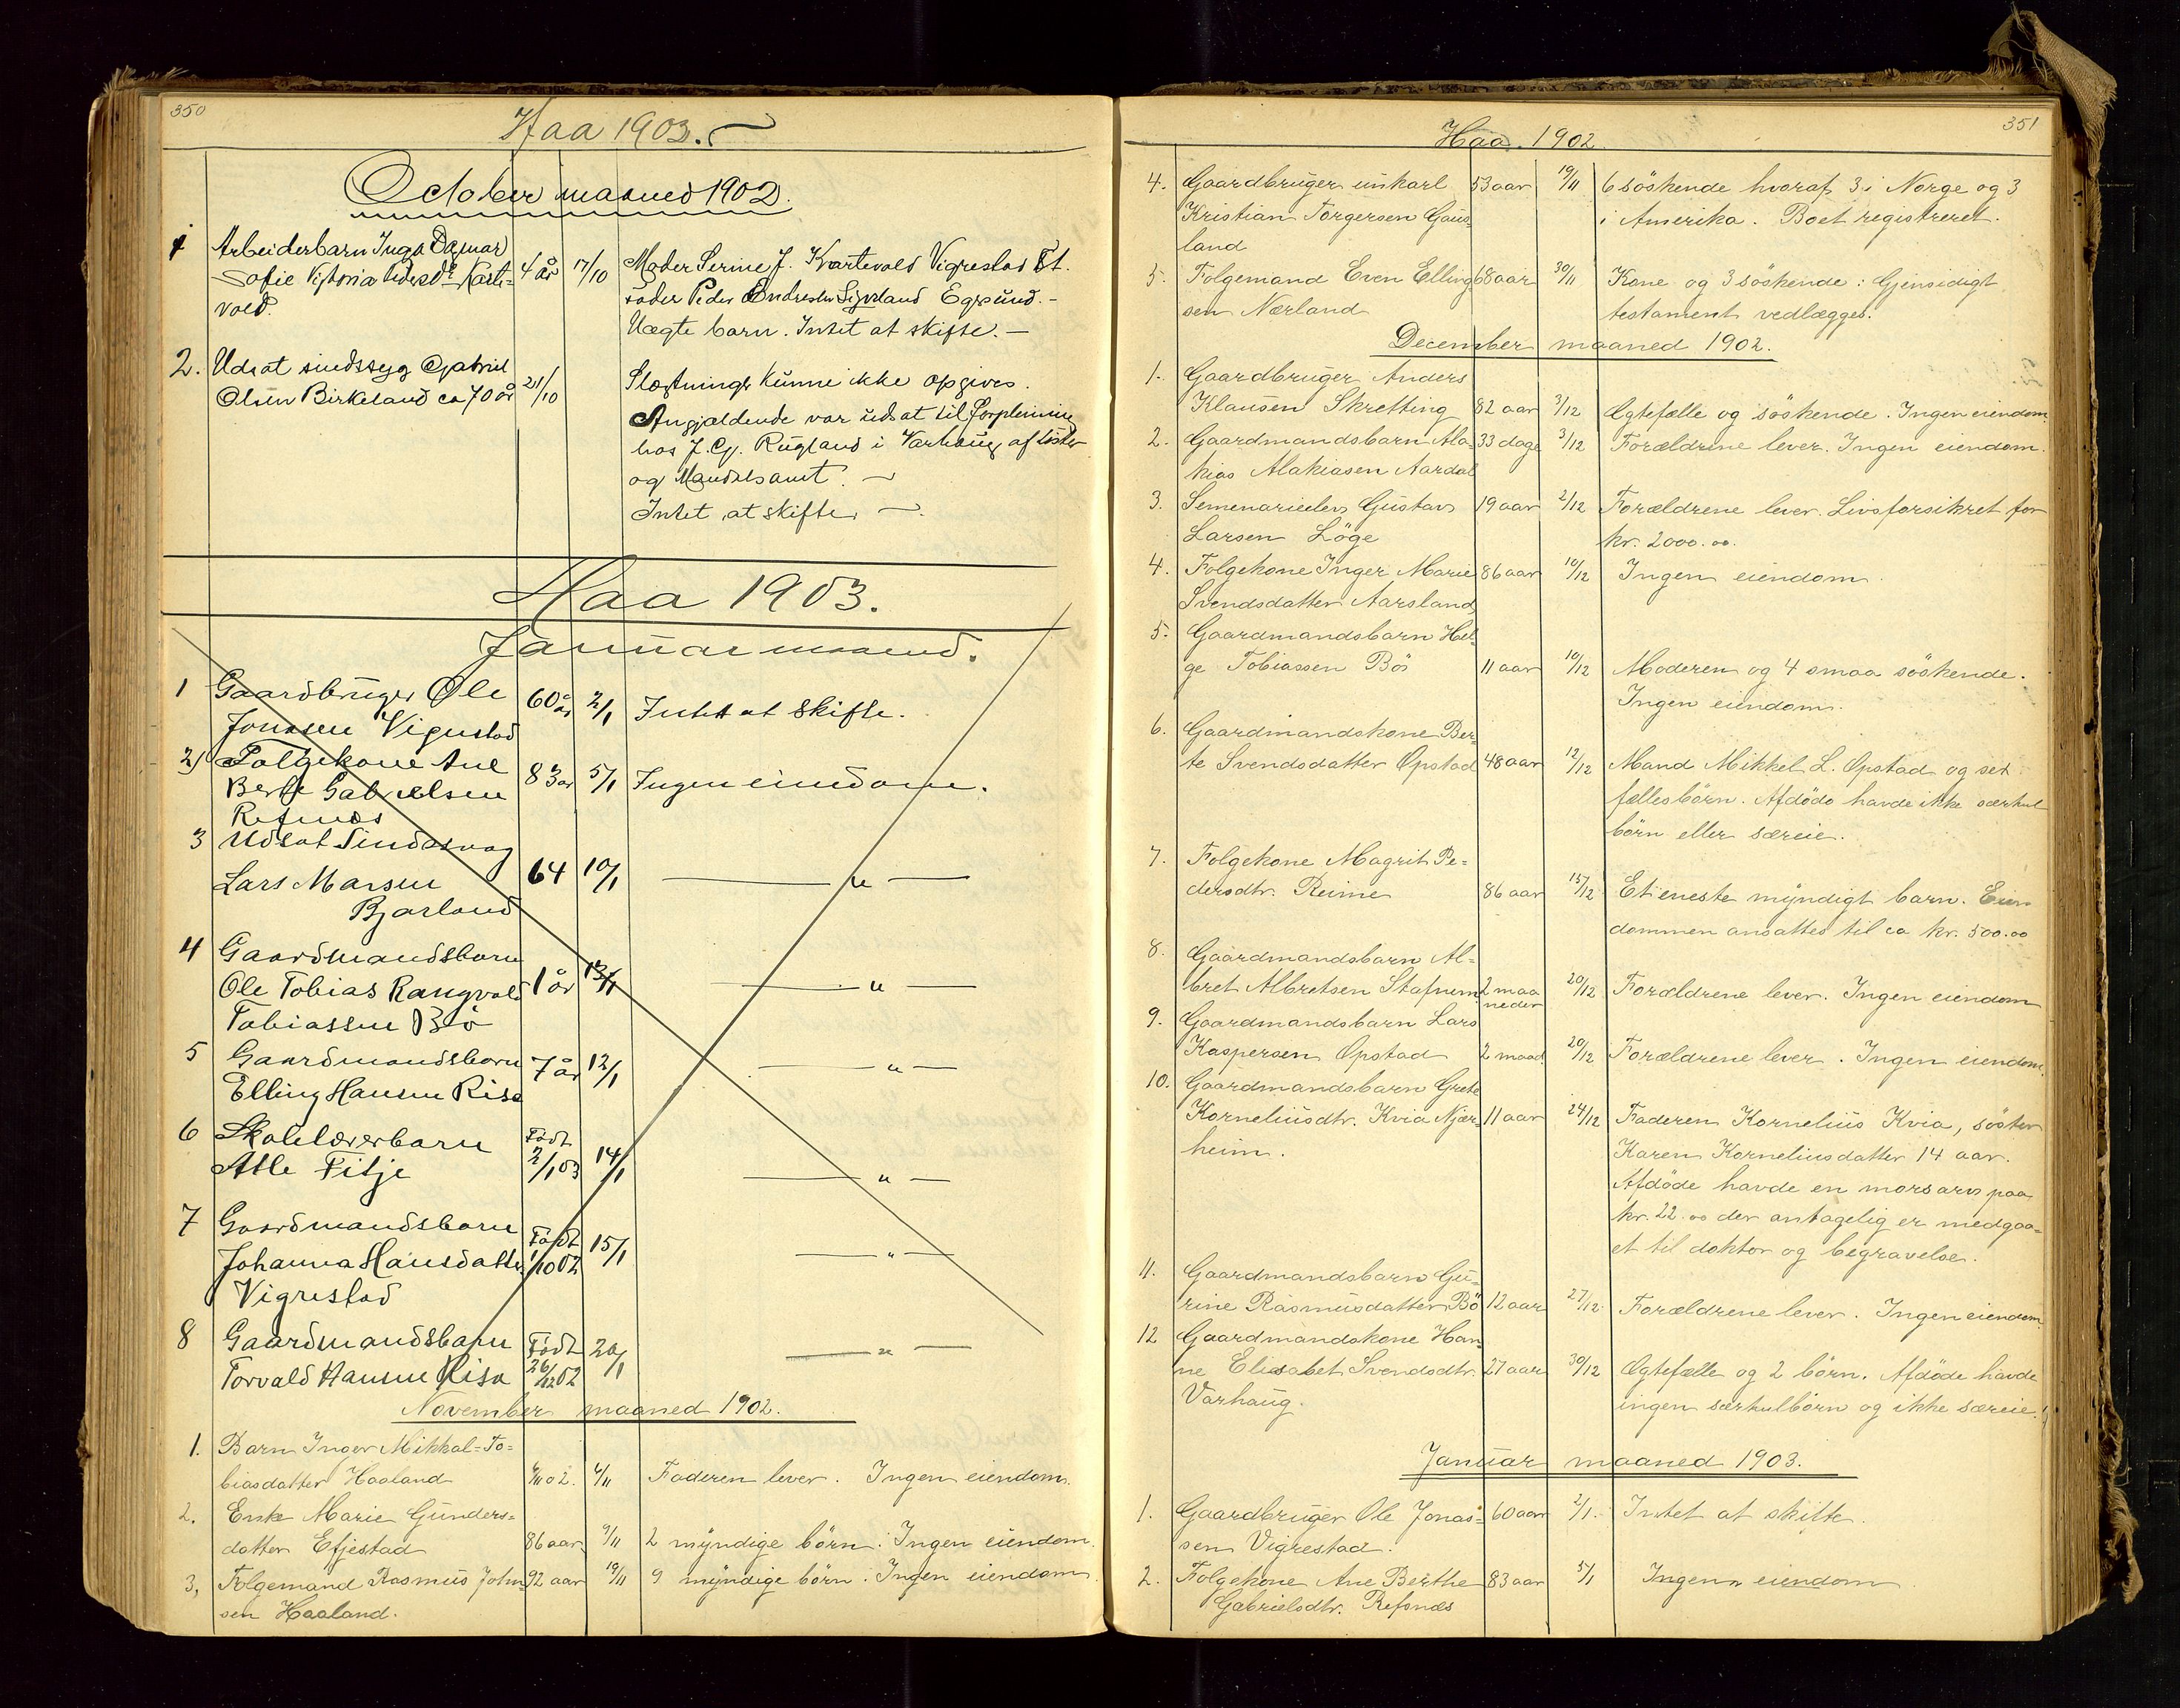 350
Haa 1903.
October maaned 1902.
1 Arbeiderbarn Inga Dagmar
Sofie Viktoria
vold. 4 år 17/10 Moder Serine J. Kvartevold Vigrestad St.
fader Peder Endresen Sigveland Egersund.-
Uægte barn. Intet at skifte.-
2. Udsat sindssyg Gabriel
Olsen Birkeland ca 70 år 21/10 Slægtninge kunne ikke opgives.
Angjældende var udsat til forpleining
hos J. G. Rugland i Varhaug af Lister
og Mandals amt. -
Intet at skifte. -
Haa 1903.
Januar maaned.
1 Gaardbruger Ole
Jonasen Vigrestad 60 år 2/1 Intet at skifte.
2) Folgekone Ane
Berte Gabrielsen
Refsnæs 83 år 5/1 Ingen eiendom.
3 Udsat Sindssvag
Lars Larsen
Bjarland 64 10/1 — " —
4 Gaardmandsbarn
Ole Tobias Rangvald
Tobiassen Bö 1 år 13/1 — " —
5 Gaardmandsbarn
Elling Hansen Risa 7 år 12/1 — " —
6 Skolelærerbarn
Atle Fitje Födt 2/1 03 14/1 — " —
7 Gaardmandsbarn
Johanna Hansdatter
Vigrestad Födt 1/10 02 15/1 — " —
8 Gaardmandsbarn
Torvald Hansen Risa Födt 26/12 02 20/1 — " —
November maaned 1902.
1. Barn Inger Mikkal=To=
biasdatter Haaland 4/11 02. 6/11 Faderen lever. Ingen eiendom.
2. Enke Marie Gunders=
datter Efjestad 86 aar 9/11 2 myndige börn: Ingen eiendom.
3, Folgemand Rasmus John= 92 aar 19/11 9 myndige börn: Ingen eiendom.
sen Haaland.
351
Haa. 1902.
4. Gaardbruger unkarl 53 aar 19/11 6 söskende hvoraf 3 i Norge og 3
Kristian Torgersen Gaus= i Amerika. Boet registreret.
land
5. Folgemand Even Elling= 68 aar 30/11 Kone og 3 söskende: Gjensidigt
sen Nærland testament vedlægges.
December maaned 1902.
1. Gaardbruger Anders
Klausen Skretting 82 aar 3/12 Ægtefælle og söskende. Ingen eiendom.
2. Gaardmandsbarn Ala= 33 dage 3/12 Forældrene lever. Ingen eiendom.
kias Alakiasen Aardal
3. Semenarieelev Gustav 19 aar 2/12 Forældrene lever. Livsforsikret for
Larsen Löge kr. 2000.00.
4. Folgekone Inger Marie 86 aar 10/12 Ingen eiendom.
Svendsdatter Aarsland
5. Gaardmandsbarn Hel=
ge Tobiassen Bö 11 aar 10/12 Moderen og 4 smaa söskende.
Ingen eiendom.
6. Gaardmandskone Ber=
te Svendsdatter Opstad 48 aar 12/12 Mand Mikkel L. Opstad og set
fællesbörn. Afdöde havde ikke særkul
börn eller særeie.
7. Folgekone Magrit Pe=
dersdtr. Reime 86 aar 15/12 Et eneste myndigt barn. Eien
dommen ansattes til ca kr. 500.00
8. Gaardmandsbarn Al=
bret Albretsen Stafnem 2 maa neder 20/12 Forældrene lever. Ingen eiendom
9. Gaardmandsbarn Lars
Kaspersen Opstad 2 maad. 20/12 Forældrene lever. Ingen eiendom.
10. Gaardmandsbarn Grete
Korneliusdtr. Kvia Njær= 11 aar 24/12 Faderen Kornelius Kvia, söster
heim. Karen Korneliusdatter 14 aar.
Afdöde havde en morsarv paa
kr. 22.00 der antagelig er medgaa=
et til doktor og begravelse.
11. Gaardmandsbarn Gu=
rine Rasmusdatter Bö 12 aar 27/12. Forældrene lever. Ingen eiendom.
12 Gaardmandskone Han
ne Elisabet Svendsdtr. 27 aar 30/12 Ægtefælle og 2 börn. Afdöde havde
Varhaug. ingen særkulbörn og ikke særeie.
Januar maaned 1903.
1. Gaardbruger Ole Jonas= 60 aar 2/1. Intet at skifte.
sen Vigrestad.
2. Folgekone Ane Berthe 83 aar 5/1 Ingen eiendom
Gabrielsdtr. Refsnæs